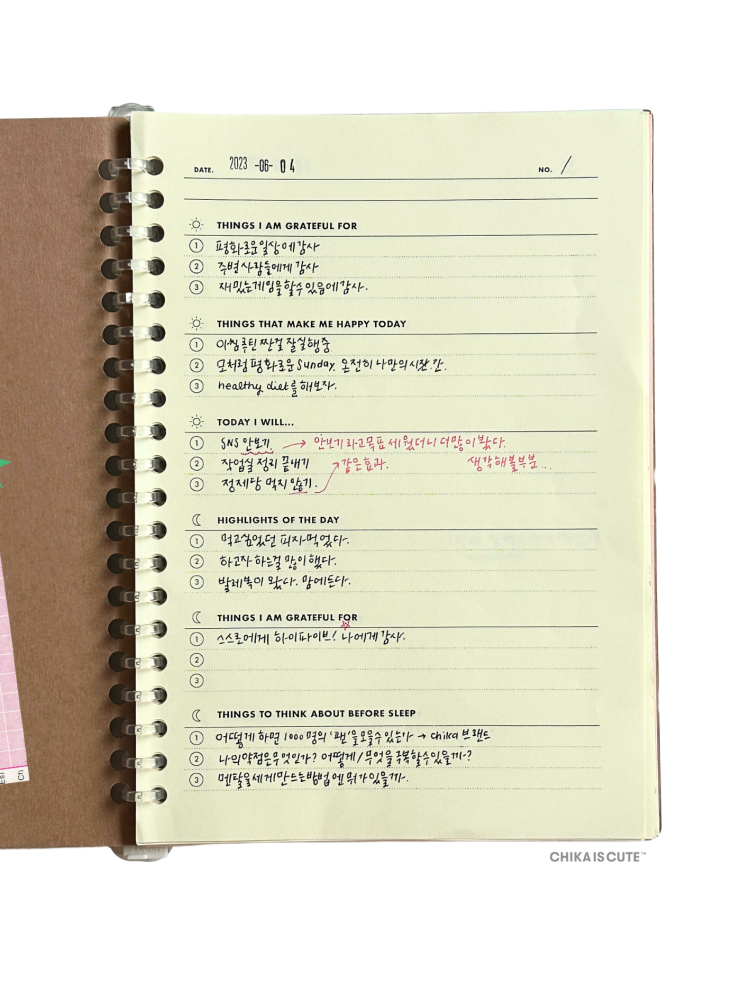 DATE. 2023 -06- 04 NO. /
THINGS I AM GRATEFUL FOR
1 평화로운 일상에 감사
2 주변 사람들에게 감사
3 재밌는 게임을 할 수 있음에 감사.
THINGS THAT MAKE ME HAPPY TODAY
1 아침 루틴 짠걸 잘 실행중
2 모처럼 평화로운 Sunday, 온전히 나만의 시간.
3 healthy diet를 해보자.
TODAY I WILL...
1 SNS 안보기 → 안보기라고 목표 세웠더니 더 많이 봤다.
2 작업실 정리 끝내기 ↗ 같은 효과. 생각해볼 부분...
3 정제당 먹지 않기.
HIGHLIGHTS OF THE DAY
1 먹고싶었던 피자 먹었다.
2 하고자 하는걸 많이 했다.
3 발레복이 왔다. 맘에든다.
THINGS I AM GRATEFUL FOR
1 스스로에게 하이파이브! 나에게 감사.
2
3
THINGS TO THINK ABOUT BEFORE SLEEP
1 어떻게 하면 1000명의 '팬'을 모을 수 있는가 → chika 브랜드
2 나의 약점은 무엇인가? 어떻게/무엇을 극복할 수 있을까?
3 멘탈을 세게 만드는 방법엔 뭐가 있을까.
CHIKA IS CUTE™